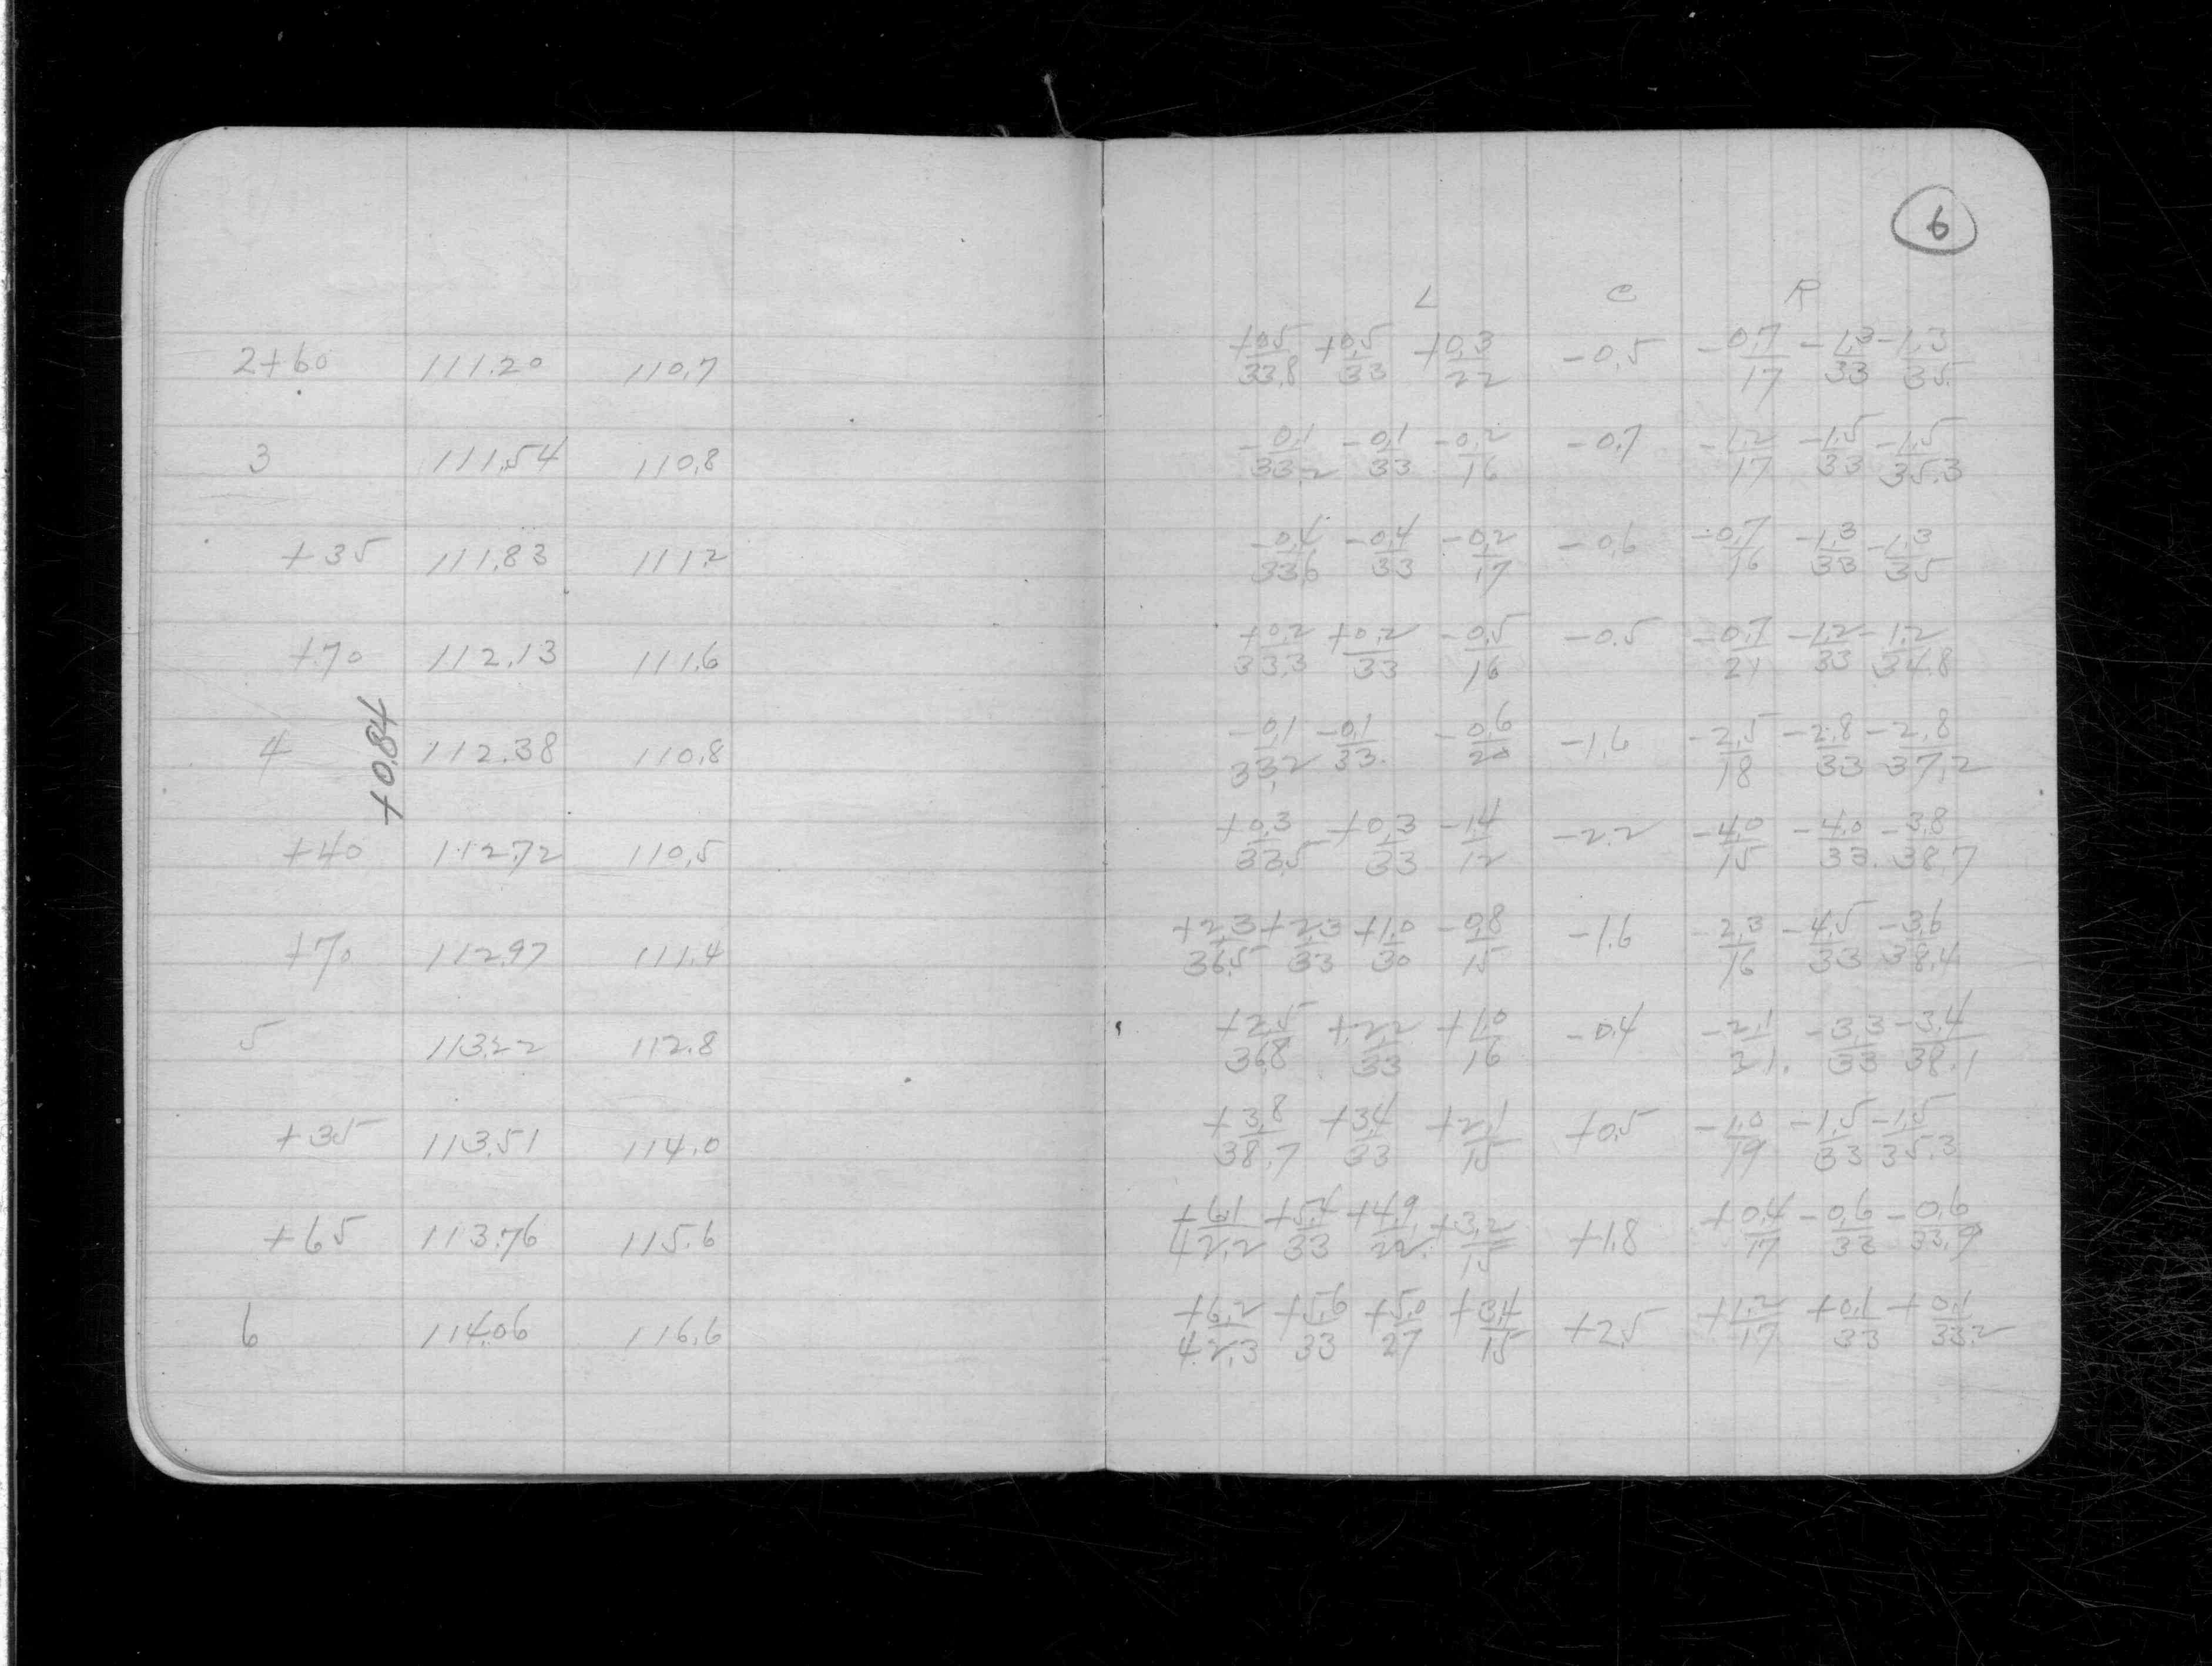 6
L C R
2+60 111.20 110.7 +0.5/33.8 +0.5/33 +0.3/22 -0.5 -0.7/17 -1.3/33 -1.3/35.
3 111.54 110.8 -0.1/33.2 -0.1/33 -0.2/16 -0.7 -1.2/17 -1.5/33 -1.5/35.3
+35 111.83 111.2 -0.4/33.6 -0.4/33 -0.2/17 -0.6 -0.7/16 -1.3/33 -1.3/35
+70 112.13 111.6 +0.2/33.3 +0.2/33 -0.5/16 -0.5 -0.7/21 -1.2/33 -1.2/34.8
+0.84
4 112.38 110.8 -0.1/33.2 -0.1/33. -0.6/20 -1.6 -2.5/18 -2.8/33 -2.8/37.2
+40 112.72 110.5 +0.3/33.5 +0.3/33 -1.4/12 -2.2 -4.0/15 -4.0/33. -3.8/38.7
+70 112.97 111.4 +2.3/36.5 +2.3/33 +1.0/30 -0.8/15 -1.6 -2.3/16 -4.5/33 -3.6/38.4
5 113.22 112.8 +2.5/36.8 +2.2/33 +1.0/16 -0.4 -2.1/21. -3.3/33 -3.4/38.1
+35 113.51 114.0 +3.8/38.7 +3.4/33 +2.1/15 +0.5 -1.0/19 -1.5/33 -1.5/35.3
+65 113.76 115.6 +6.1/42.2 +5.4/33 +4.9/22. +3.2/15 +1.8 +0.4/17 -0.6/33 -0.6/33.9
6 114.06 116.6 +6.2/42.3 +5.6/33 +5.0/27 +3.4/15 +2.5 +1.2/17 +0.1/33 +0.1/33.2